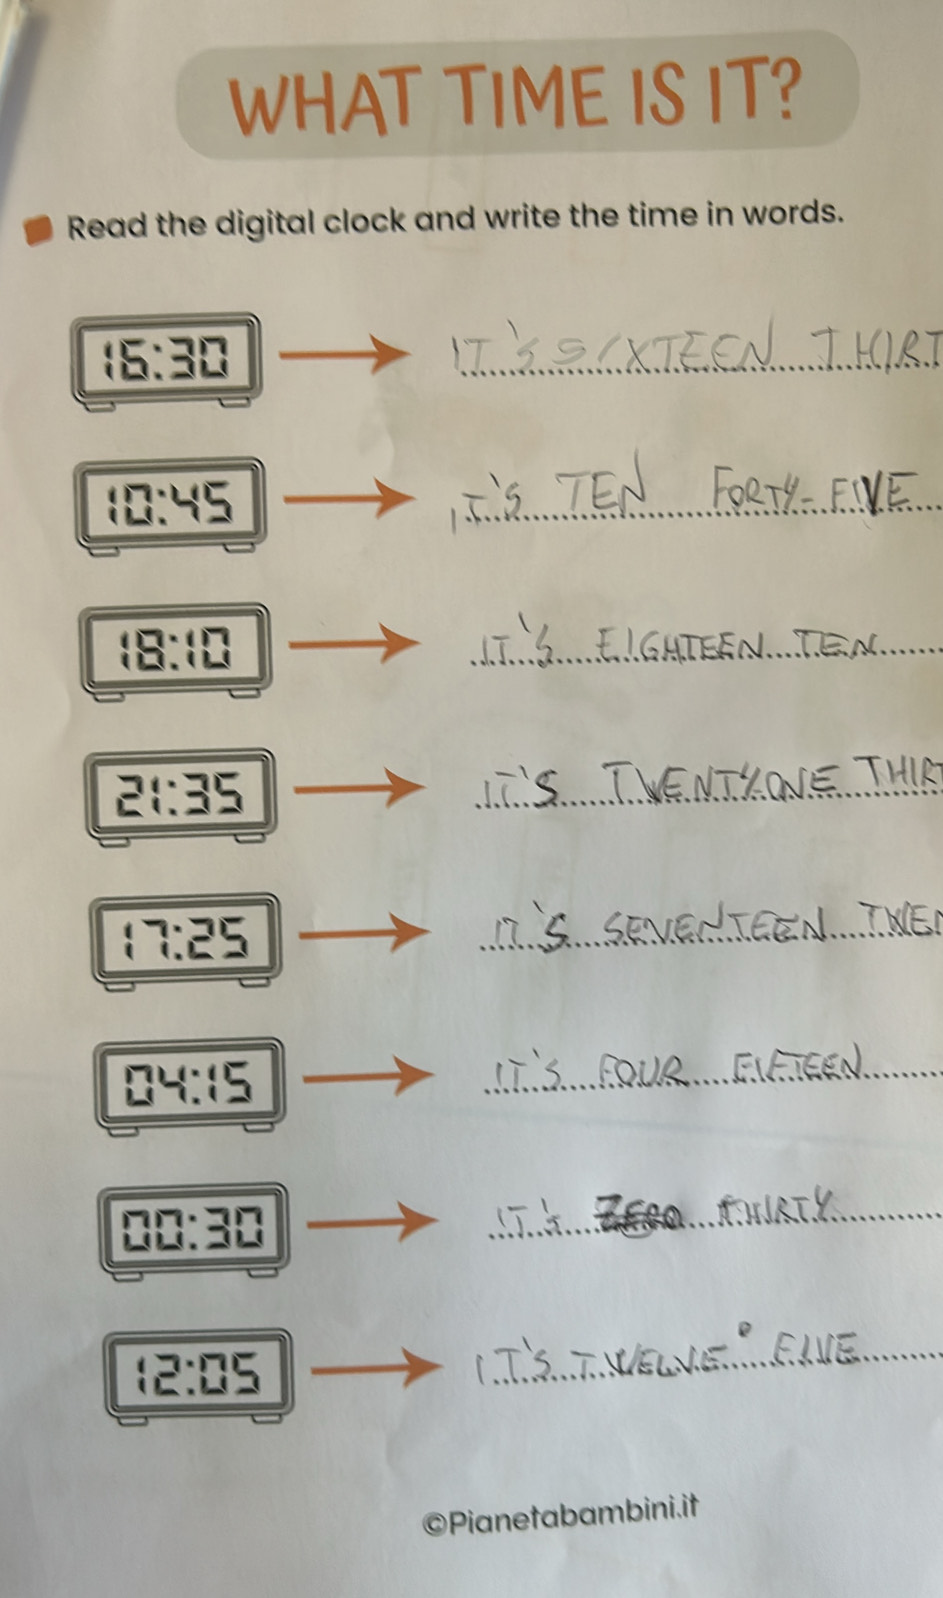 WHAT TIME IS IT?
Read the digital clock and write the time in words.
16:30 IT'S SIXTEEN THIRT
10:45 IT'S TEN FORTY-FIVE
18:10 IT'S EIGHTEEN TEN
21:35 IT'S TWENTY-ONE THIRT
17:25 IT'S SEVENTEEN TWEN
04:15 IT'S FOUR FIFTEEN
00:30 IT'S ZERO THIRTY
12:05 IT'S TWELVE O FIVE
©Pianetabambini.it